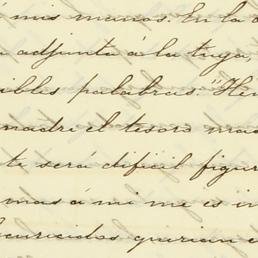 á mis manos. En la
adjunta á la tuya,
sibles palabras: "He
madre el tesoro mas
te será dificil figur
mas á mi me es in
scurecidos querian e